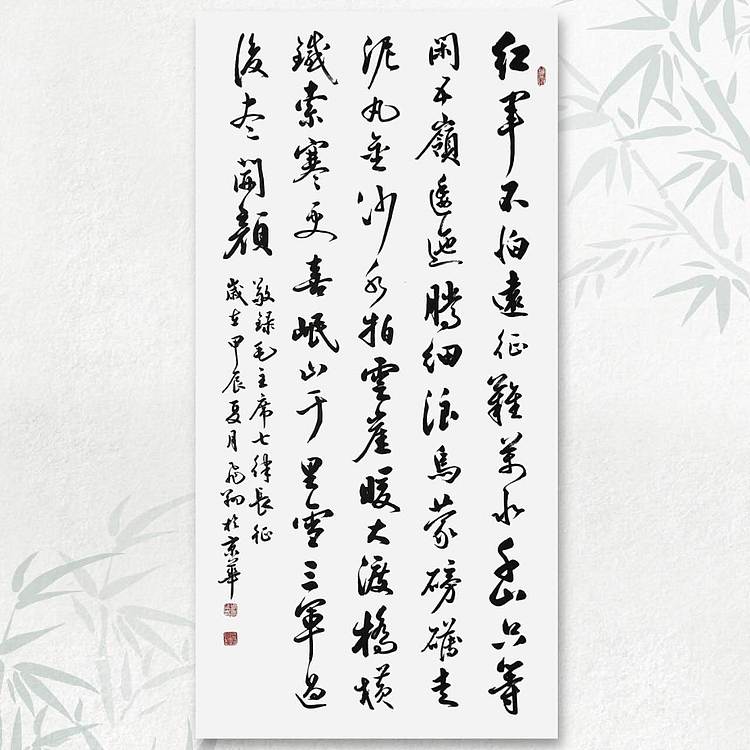 红军不怕遠征難萬水千山只等
閑五嶺逶迤騰細浪烏蒙磅礴走
泥丸金沙水拍雲崖暖大渡橋横
鐵索寒更喜岷山千里雪三軍過
後盡開顏
敬録毛主席七律長征
歲在甲辰夏月飛翔於京華